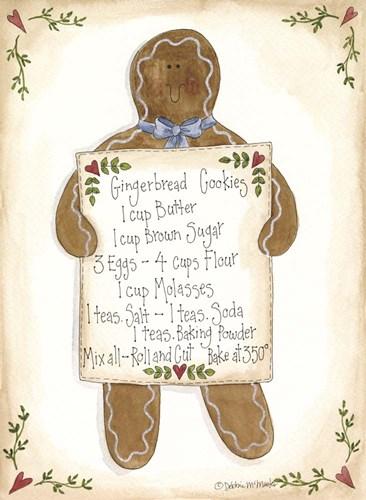 Gingerbread Cookies
1 cup Butter
1 cup Brown Sugar
3 Eggs - 4 cups Flour
1 cup Molasses
1 teas. Salt - 1 teas. Soda
1 teas. Baking Powder
Mix all - Roll and Cut Bake at 350°
© Debbie McMaster